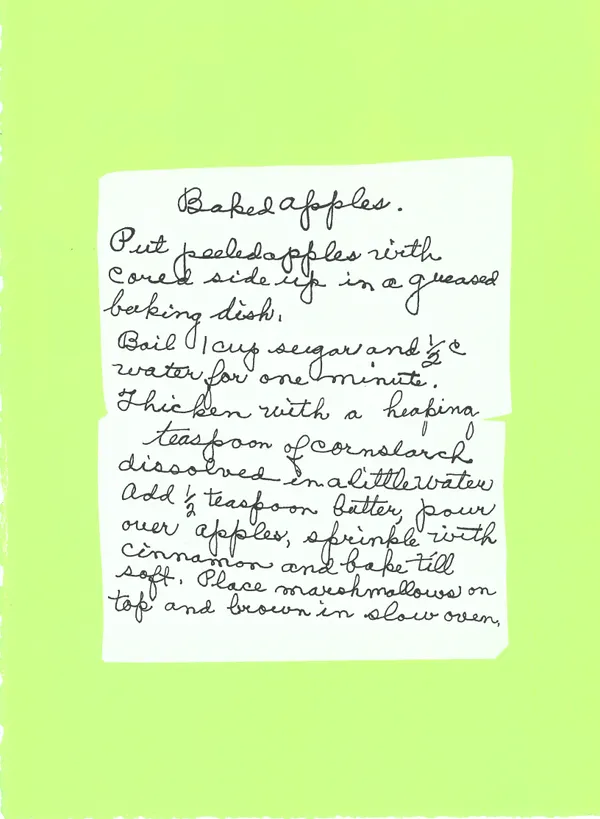 Baked apples.
Put peeled apples with
cored side up in a greased
baking dish.
Boil 1 cup sugar and 1/2 c
water for one minute.
Thicken with a heaping
teaspoon of cornstarch
dissolved in a little water
Add 1/2 teaspoon butter, pour
over apples, sprinkle with
cinnamon and bake till
soft. Place marshmallows on
top and brown in slow oven.